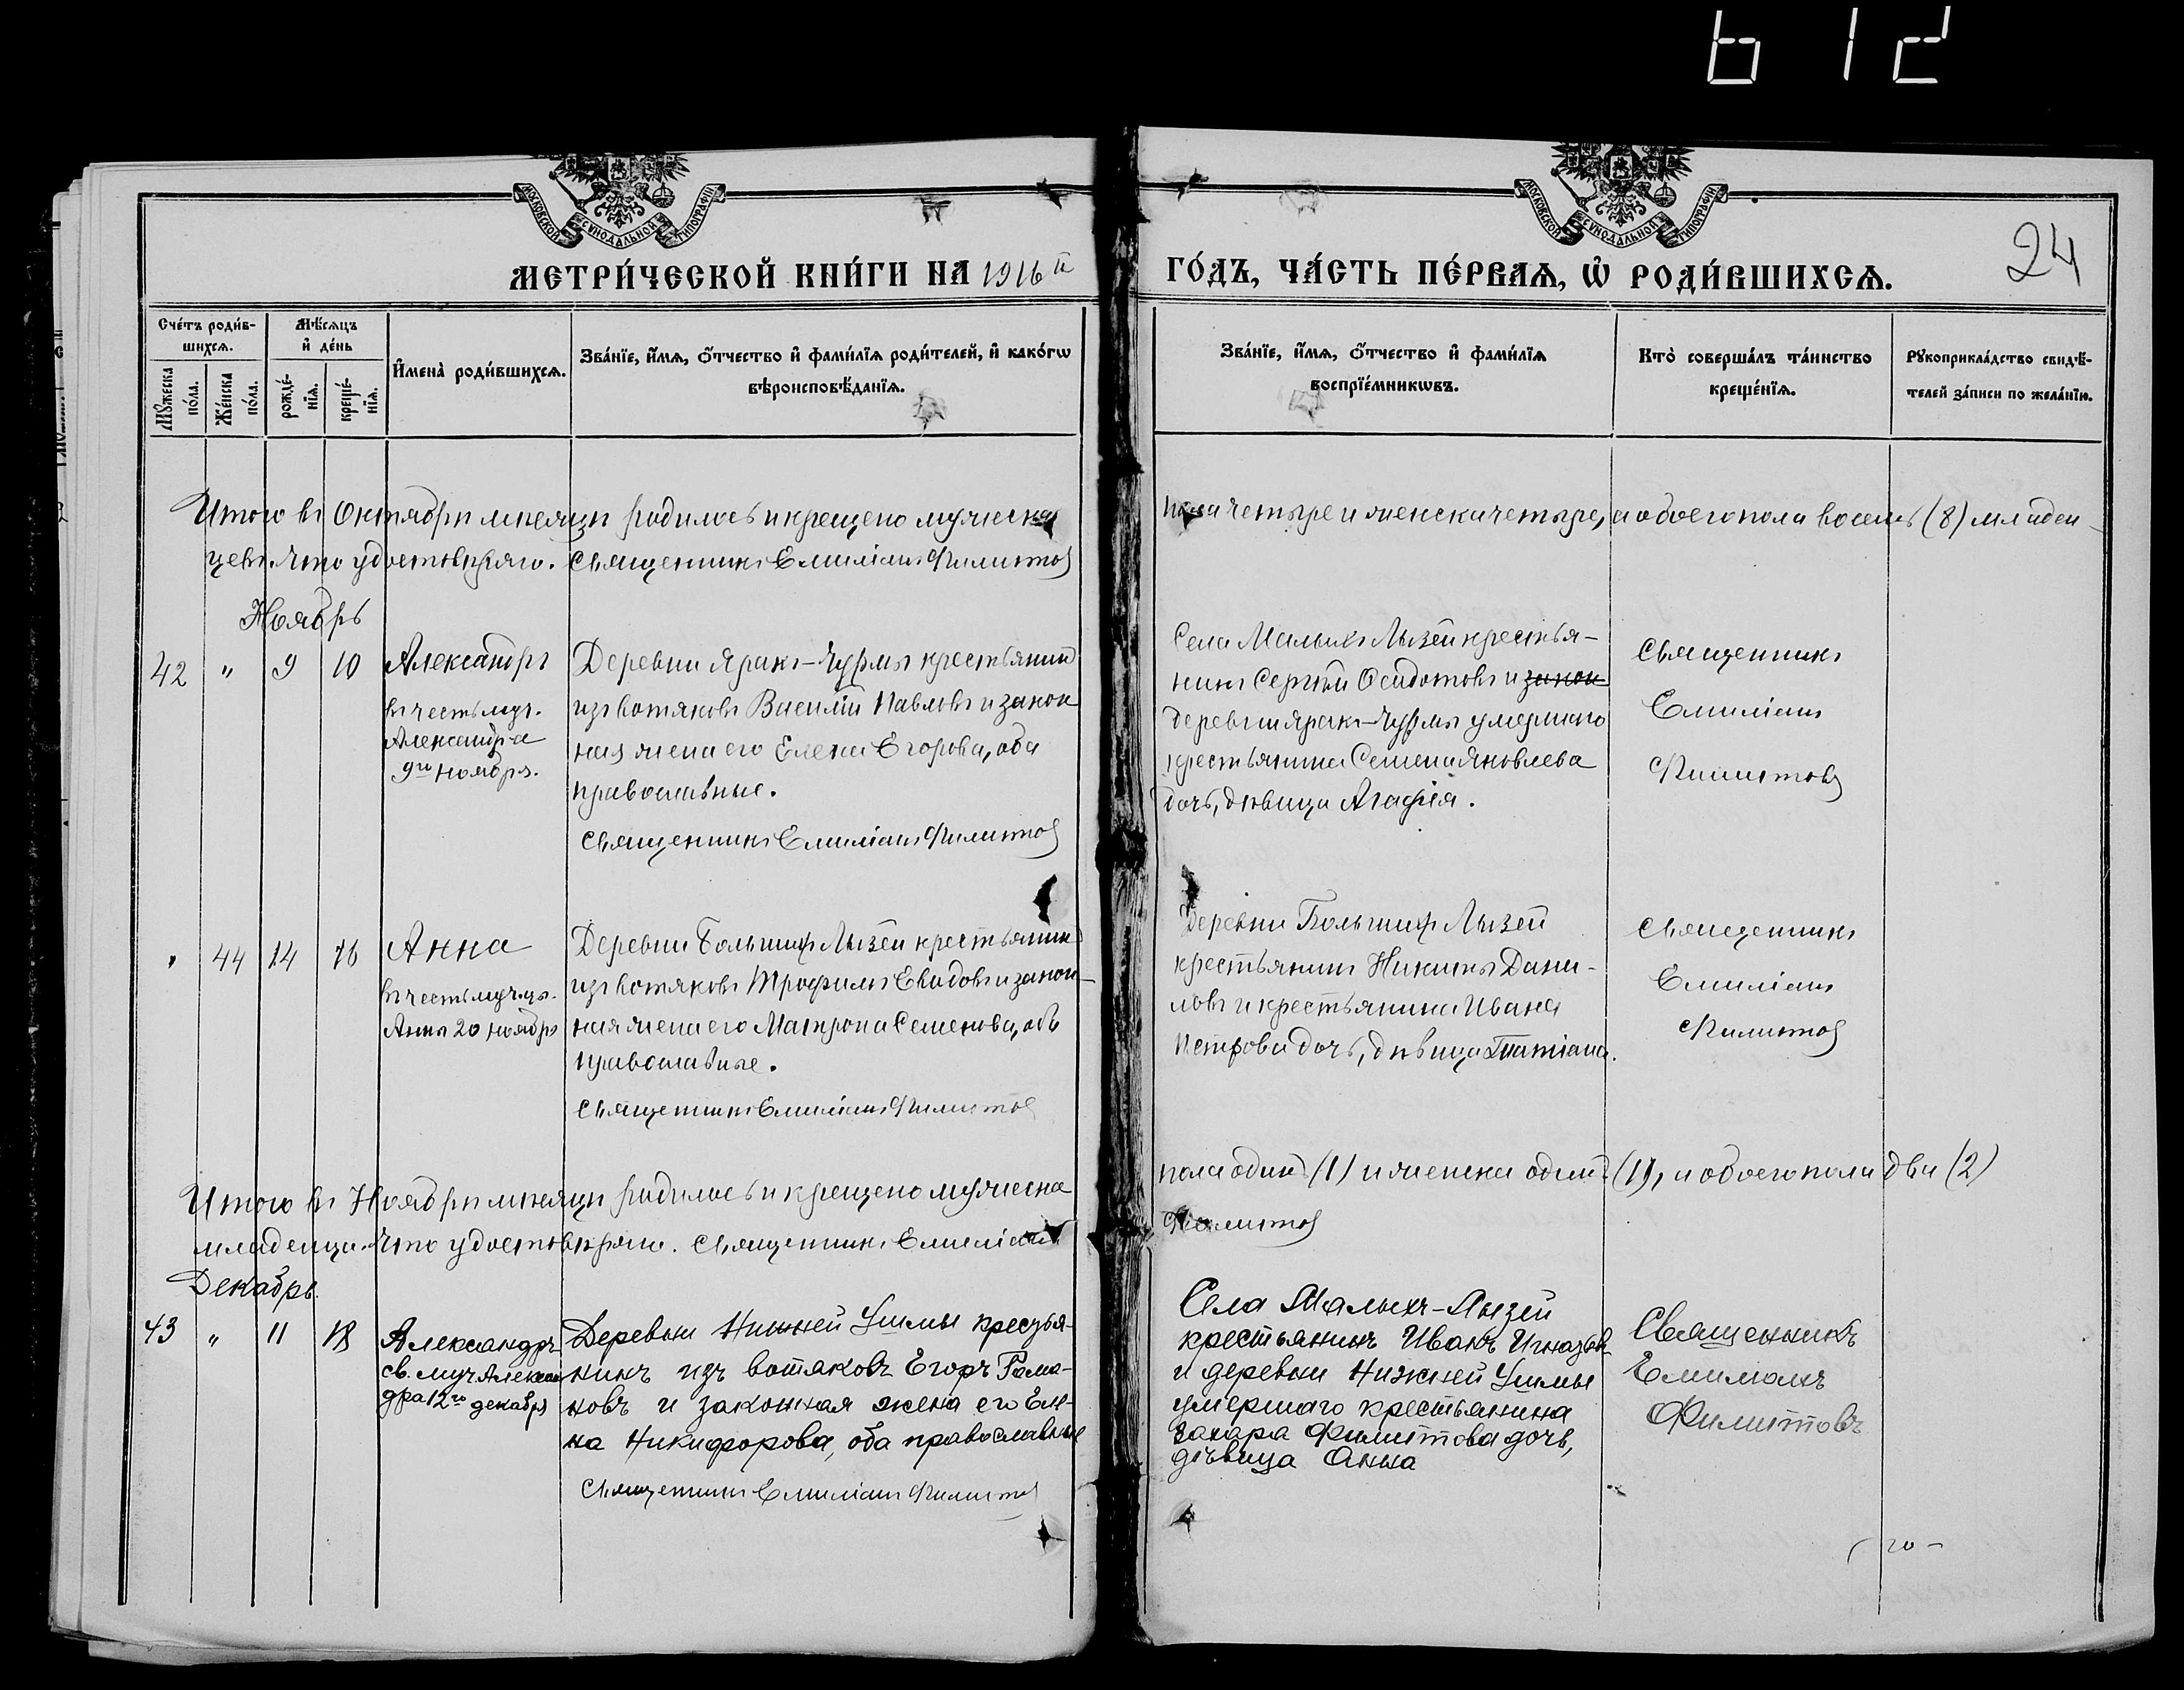 612
МОСКОВСКОЙ СѴНОДАЛЬНОЙ ТИПОГРАФІИ
МОСКОВСКОЙ СѴНОДАЛЬНОЙ ТИПОГРАФІИ
24
МЕТРИ́ЧЕСКОЙ КНИ́ГИ НА 1916 й
ГО́ДЪ, ЧА́СТЬ ПЕ́РВАѦ, Ѡ҆ РОДИ́ВШИХСѦ.
Сче́тъ роди́в-
шихсѧ.
Мѣ́сѧцъ
и҆ де́нь
Мꙋ́жеска
по́ла.
Же́нска
по́ла.
рожде́-
нїѧ.
креще́-
нїѧ.
И҆мена̀ роди́вшихсѧ.
Зва́нїе, и҆́мѧ, ѻ҆́тчество и҆ фами́лїѧ роди́телей, и҆ како́гѡ
вѣроисповѣ́данїѧ.
Зва́нїе, и҆́мѧ, ѻ҆́тчество и҆ фами́лїѧ
воспрїе́мникѡвъ.
Кто̀ соверша́лъ та́инство
креще́нїѧ.
Рꙋкоприкла́дство свидѣ́-
телей за́писи по жела́нїю.
Итого въ Октябрѣ мѣсяцѣ родилось и крещено мужеска
пола четыре и женска четыре, а обоего пола восемь (8) младен-
цевъ. Что удостовѣряю. Священникъ Емиліанъ Филитовъ
Ноябрь
42 " 9 10
Александръ
въ честь муч.
Александра
9го ноября.
Деревни Яракъ-Чурмы крестьянинъ
изъ вотяковъ Василій Павловъ и закон
ная жена его Елена Егорова, оба
православные.
Священникъ Емиліанъ Филитовъ
Села Малыхъ Лызей крестья-
нинъ Сергѣй Ѳедотовъ и закон
деревни Яракъ-Чурмы умершаго
крестьянина Семена Яковлева
дочь, дѣвица Агафія.
Священникъ
Емиліанъ
Филитовъ
" 44 14 16
Анна
въ честь муч-цы.
Анны 20 ноября
Деревни Большихъ Лызей крестьянинъ
изъ вотяковъ Трофимъ Евидовъ и закон-
ная жена его Матрона Семенова, оба
православные.
Священникъ Емиліанъ Филитовъ
Деревни Большихъ Лызей
крестьянинъ Никита Дани-
ловъ и крестьянина Ивана
Петрова дочь, дѣвица Татіана.
Священникъ
Емиліанъ
Филитовъ
Итого въ Ноябрѣ мѣсяцѣ родилось и крещено мужеска
пола одинъ (1) и женска одинъ (1), и обоего пола два (2)
младенца. Что удостовѣряю. Священникъ Емиліанъ
Филитовъ
Декабрь.
43 " 11 18
Александръ
св. муч. Алексан
дра 12го декабря
Деревни Нижней Ушмы крестья-
нинъ изъ вотяковъ Егоръ Рома-
новъ и законная жена его Еле-
на Никифорова, оба православные
Священникъ Емиліанъ Филитовъ
Села Малыхъ-Лызей
крестьянинъ Иванъ Игнатьевъ
и деревни Нижней Ушмы
умершаго крестьянина
Захара Филитова дочь,
дѣвица Анна
Священникъ
Емилианъ
Филитовъ